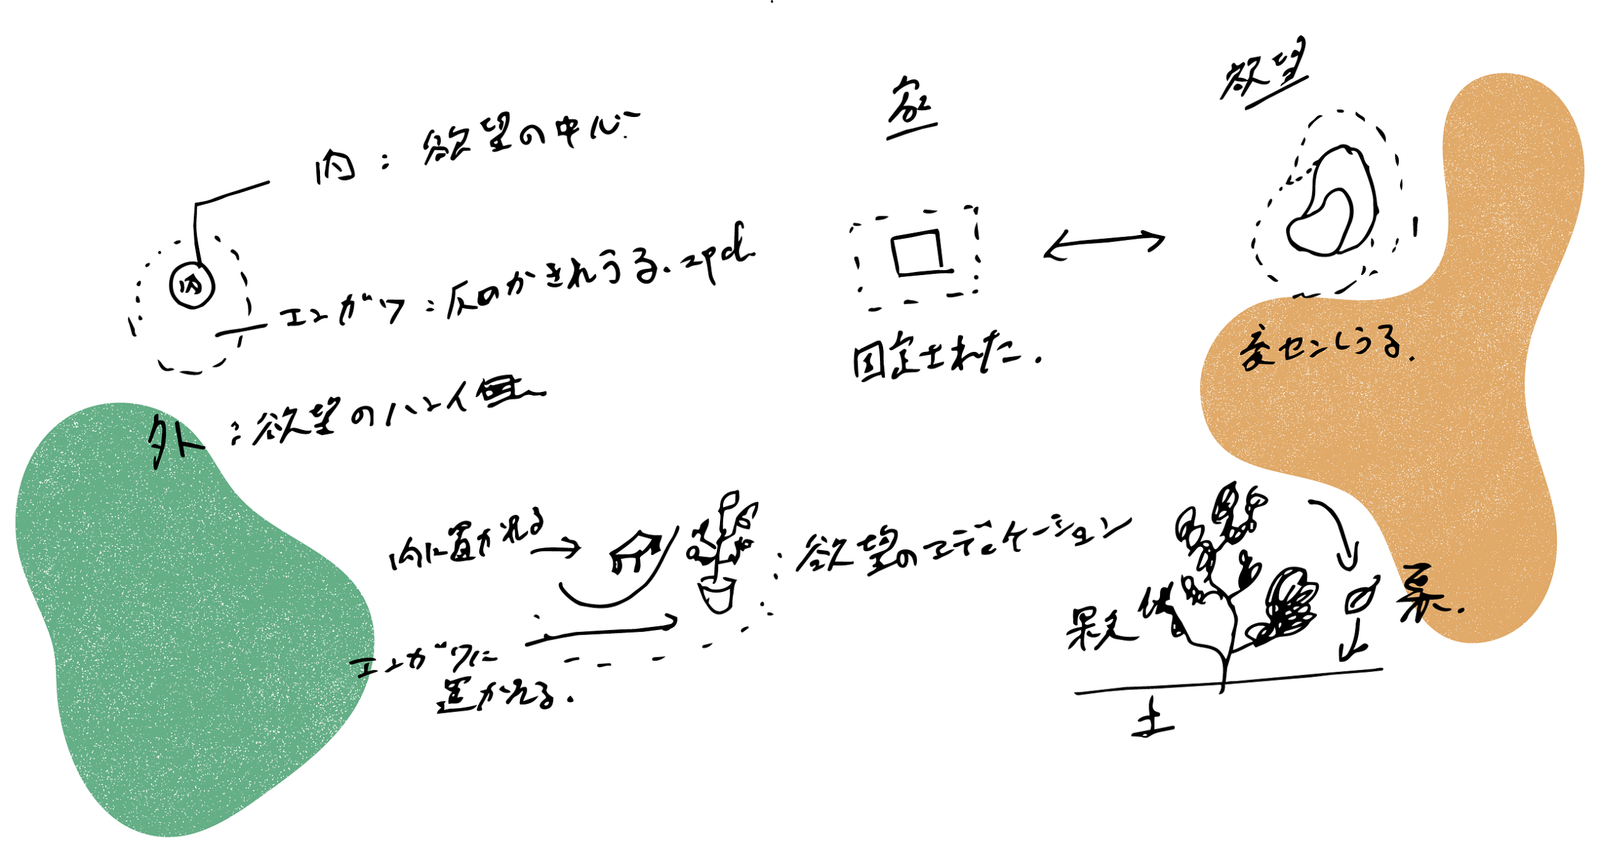 内：欲望の中心
内
エンガワ：仄めかされうる.zpd.
外：欲望のハンイ
家
固定された.
欲望
変センしうる.
内に置かれる
エンガワに
置かれる.
：欲望のエディケーション
果実
土